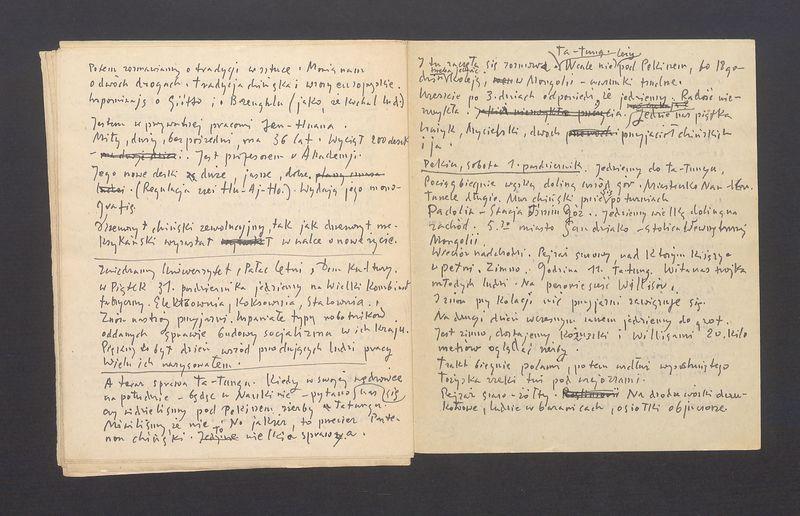 Potem rozmawiamy o tradycji w sztuce. Mówią nam
o dwóch drogach. Tradycja chińska i wzory europejskie.
Wspominają o Giotto i o Breughlu (jako, że kochał lud.)
Jestem w prywatnej pracowni Jen-Huana.
Miły, duży, bezpośredni, ma 36 lat. Wyciął 200 desek
Jest profesorem w Akademji.
Jego nowe deski są duże, jasne, dobre
(Regulacja rzeki Hu-Aj-Ho.). Wydają jego mono-
grafię.
Drzeworyt chiński rewolucyjny, tak jak drzeworyt me-
ksykański wyrastał w walce o nowe życie.
Zwiedzamy Uniwersytet, Pałac letni, Dom Kultury.
W Piątek 31. października jedziemy na Wielki Kombinat
fabryczny. Elektrownia, Koksownia, Stalownia.
Znów nastrój przyjaźni. Wspaniałe typy robotników
oddanych sprawie budowy socjalizmu w ich kraju.
Piękny to był dzień wśród produjących ludzi pracy
Wielu ich narysowałem.
A teraz sprawa Ta-Tungu. Kiedy w swojej wędrówce
na południe – będąc w Nankinie – pytano nas się
czy widzieliśmy pod Pekinem rzeźby z Tatungu.
Mówiliśmy że nie. No jakże, to przecież Parte-
non chiński. To wielkie sprawy.
Ta-Tung-
I tu zaczęła się rozmowa. (Wcale nie pod Pekinem, bo 18 go-
dzin koleją, w Mongolii – warunki trudne.
Wreszcie po 3. dniach odpowiedź, że jedziemy. Radość nie-
zwykła. Jedzie nas piątka
Mycielski, dwóch przyjaciół chińskich
i ja.
Pekin, sobota 1. październik. Jedziemy do Ta-Tungu.
Pociąg biegnie wąską doliną wśród gór. Miasteczko Nan-Kou.
Tunele długie. Mur chiński pnie się po turniach
Jedziemy wielką doliną na
zachód. 5.30 miasto – stolica Wewnętrznej
Mongolii.
Wieczór nadchodzi. Pejzaż surowy, nad którym księżyc
w pełni. Zimno. Godzina 11. Tatung. Wita nas trójka
młodych ludzi. Na peronie sześć Willisów.
I znów przy kolacji nić przyjaźni zawiązuje się.
Na drugi dzień wczesnym ranem jedziemy do grot.
Jest zimno, dostajemy kożuszki i Willisami 20. kilo
metrów oglądać rzeźby.
Trakt biegnie polami, potem wzdłuż wyschniętego
łożyska rzeki tuż pod wzgórzami.
Pejzaż szaro-żółty. Na drodze wózki dwu-
kołowe, ludzie w baranicach, osiołki objuczone.